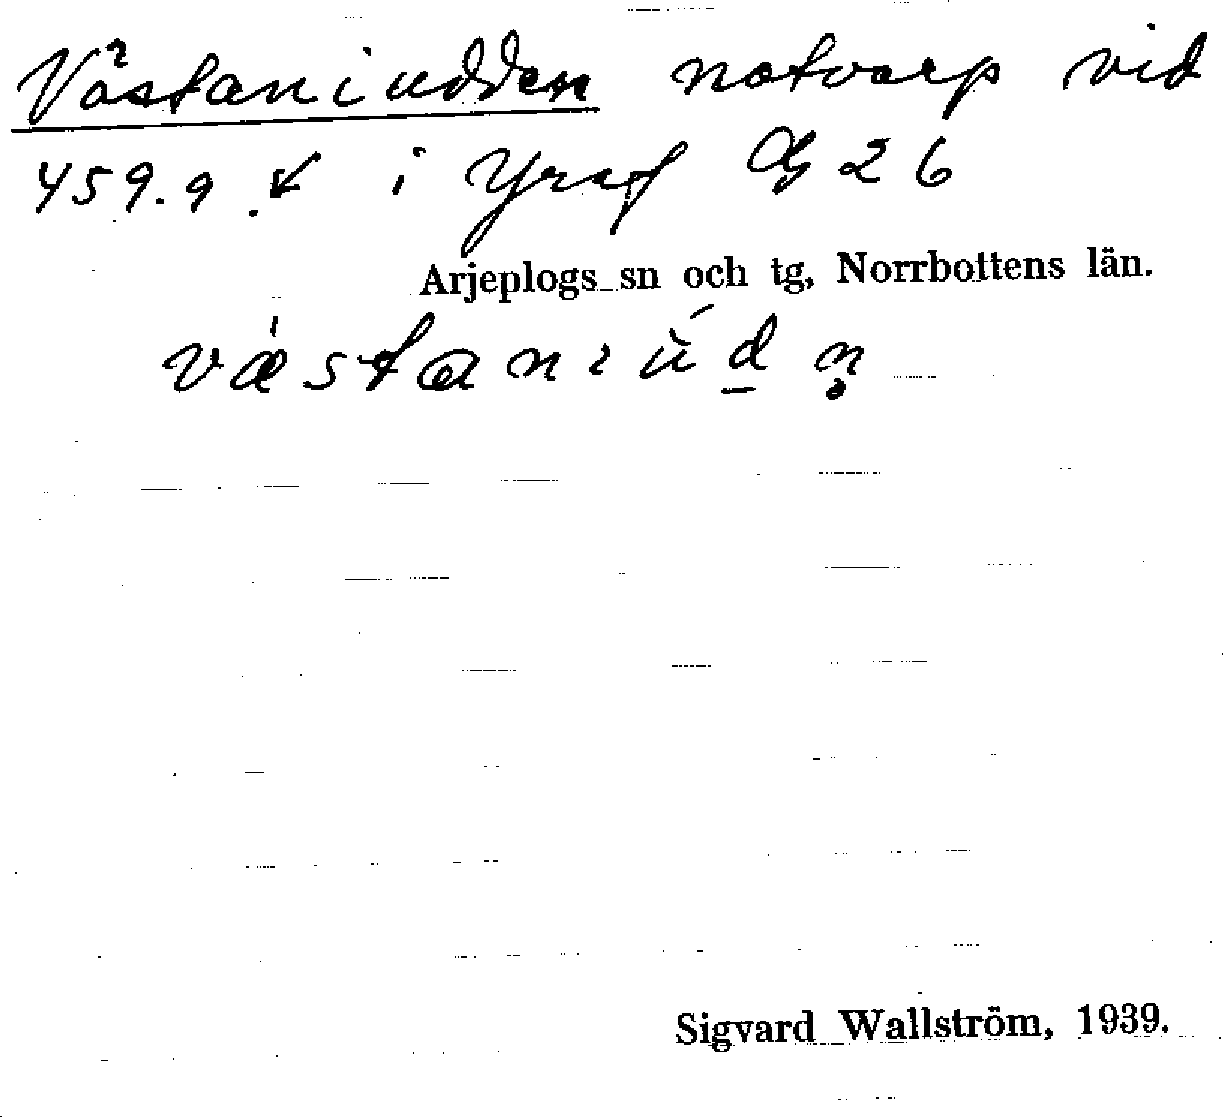 Västaniudden notvarp vid
459.9 ↙ i Yraf G 26
Arjeplogs sn och tg, Norrbottens län.
vä̀staniúdn̥
Sigvard Wallström, 1939.